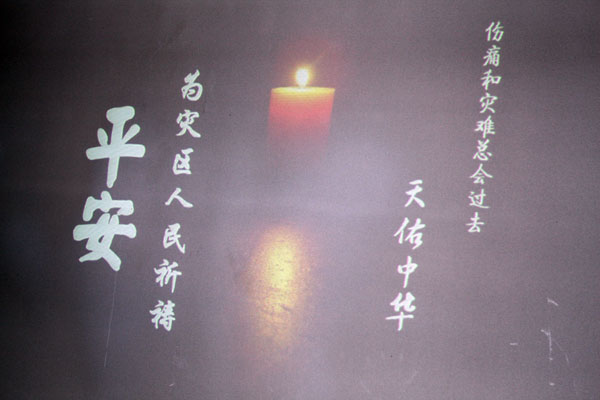 伤痛和灾难总会过去
天佑中华
为灾区人民祈祷
平安